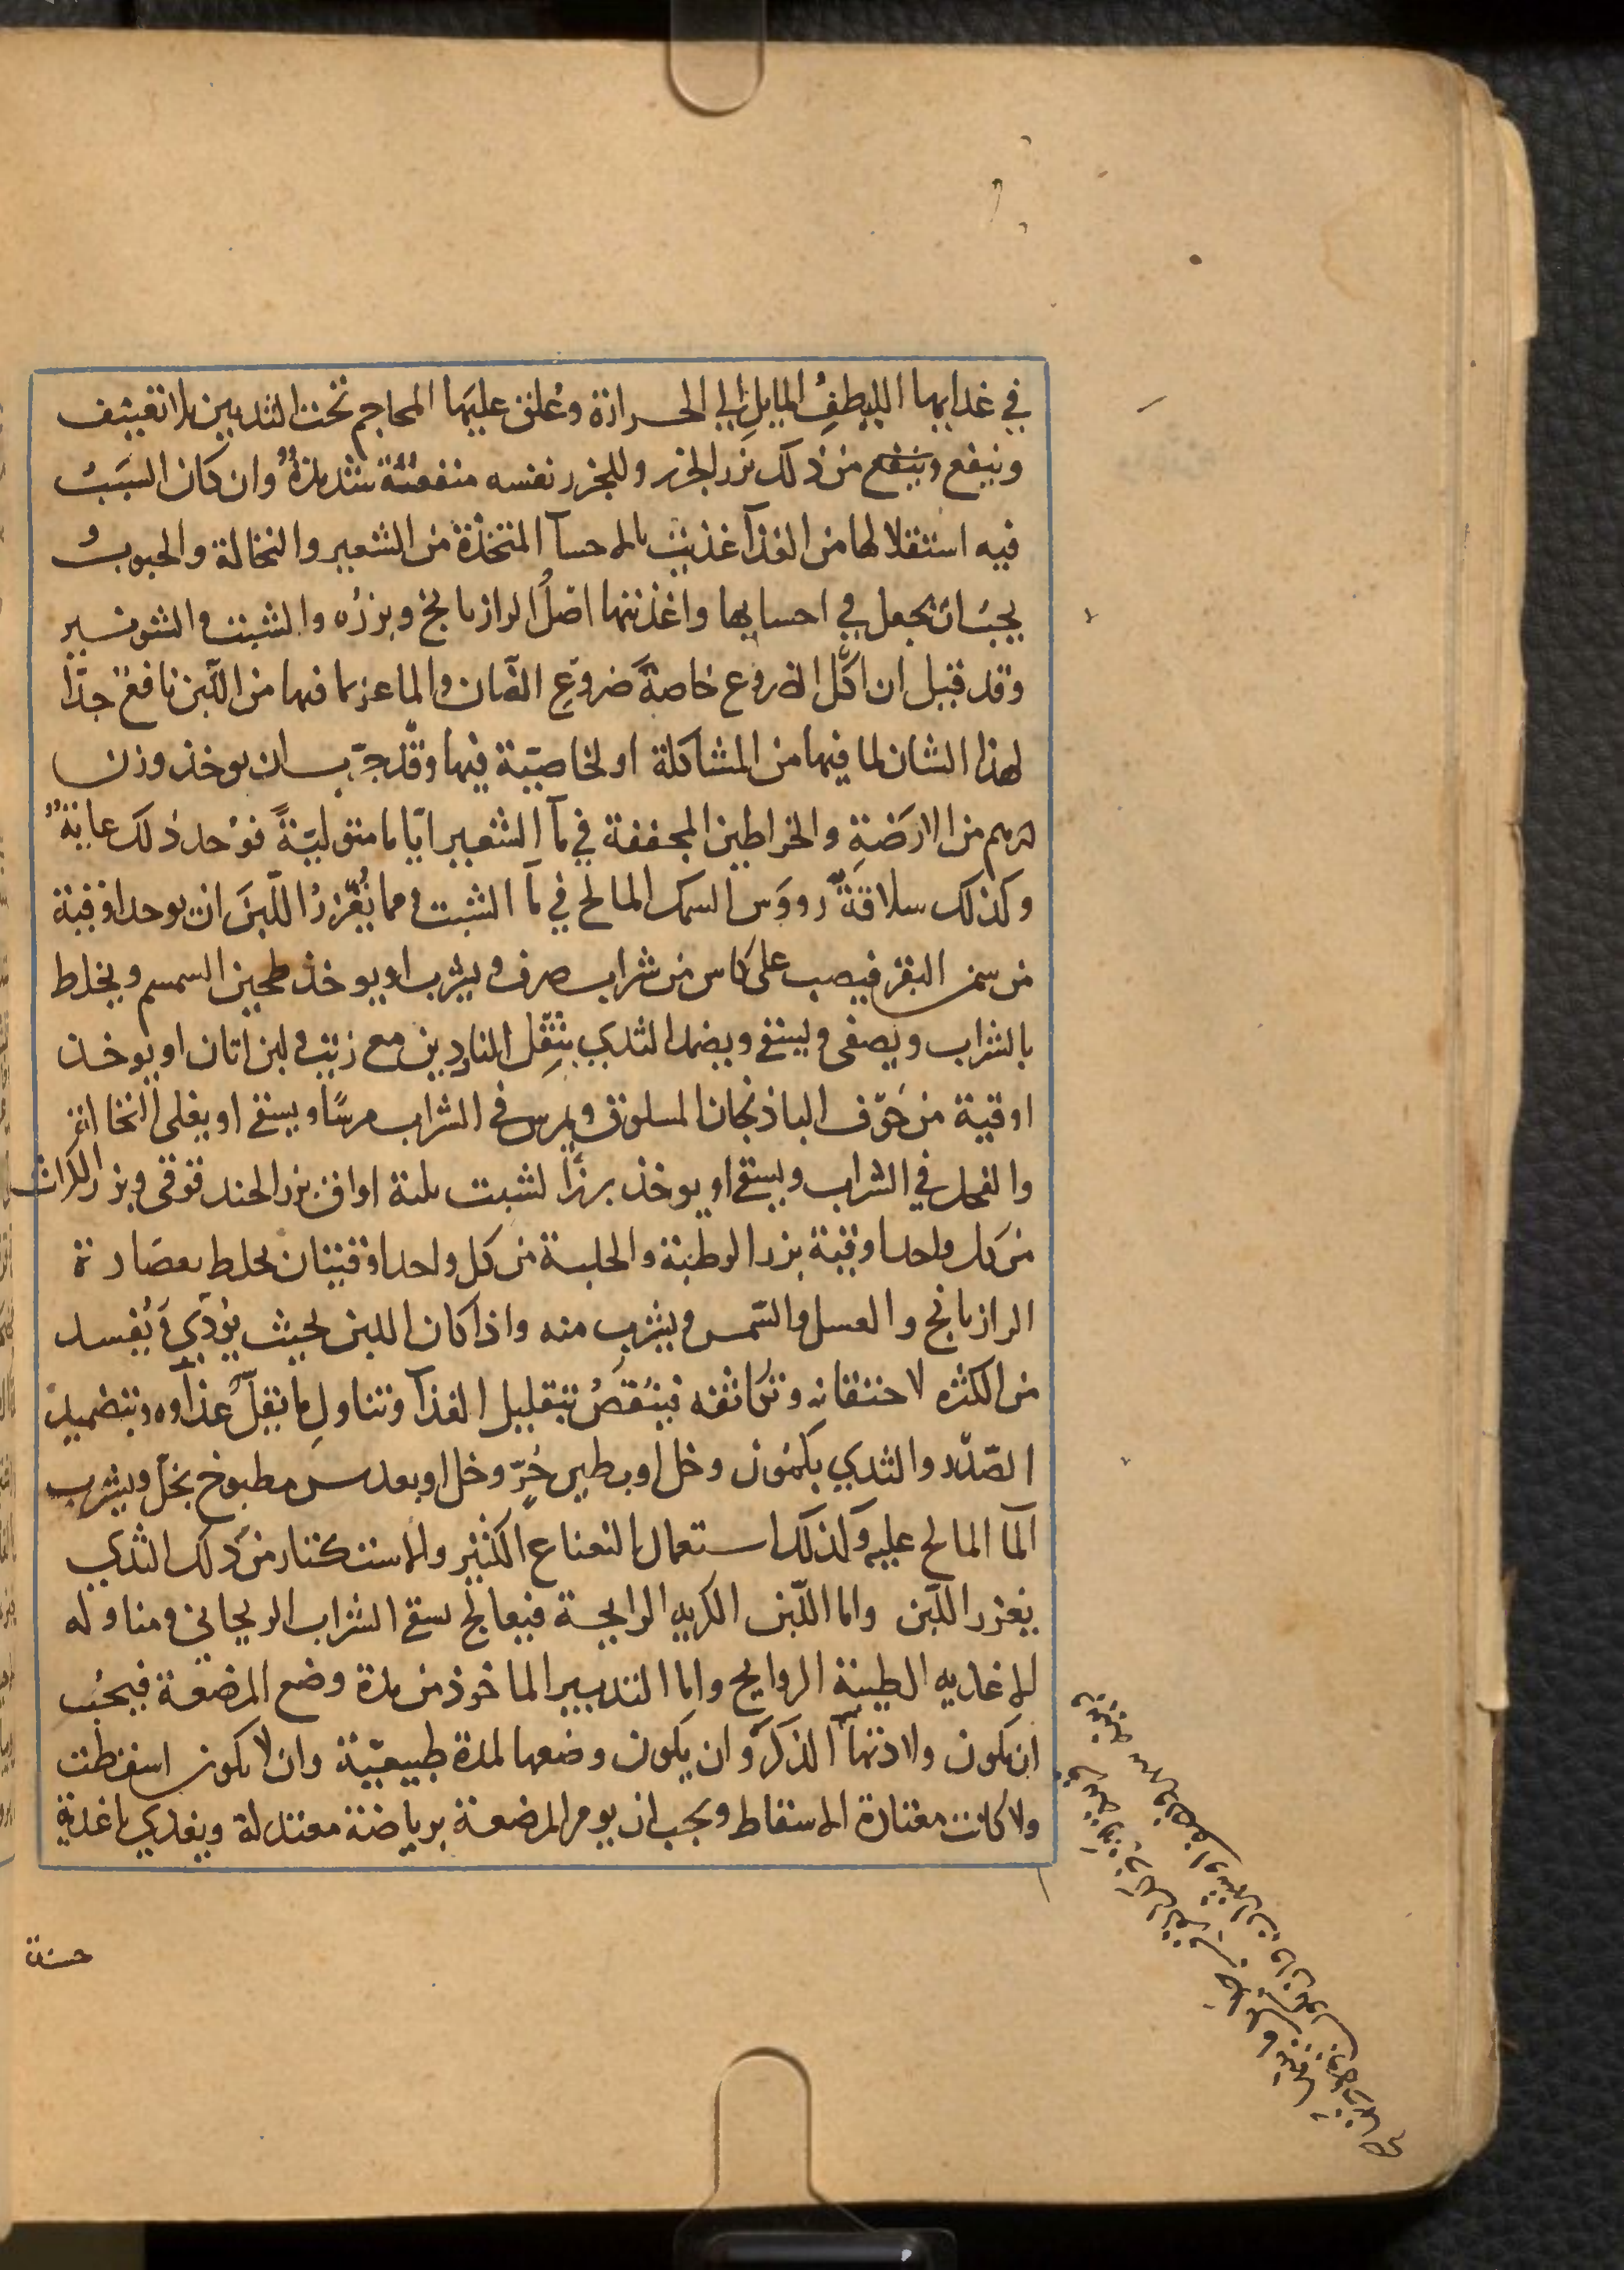 في غدايها اللطيفُ المايلِ الي الحرارة وعُلق عليها المحاجم تحت الثديين بلا تعنيف
وينفع وينفع من ذلك بزر الجزر وللجزر نفسه منفعةٌ شديدةٌ وان كان السببُ
فيه استقلالها من الغذآ غذيت بالاحسآ المتخذة من الشعير والنخالة والحبوب و
يجبُ ان يجعل في احسايها واغذيتها اصلُ الرازيانج وبزرُه والشبت والشونيز
وقد قيل ان اكل الضروع خاصةً ضروعِ الضان والماعز بما فيها من اللّبن نافعٌ جدّا
لهذا الشان لما فيها من المشاكلة او لخاصّية فيها وقد جرّب ان يوخذ وزن
درهم من الارَضةِ والخراطين المجففة في مآ الشعير ايّاما متوليةً فوُجد ذلك غايةٌ
وكذلك سلاقةٌ رووَس السمك المالح في مآ الشبت ومما يُغزرُ اللّبنَ ان يوخذ اوقية
من سمن البقر فيصب على كاس من شراب صرف ويشرب او يوخذ طحين السمسم ويخلط
بالشراب ويصفى ويسقي ويضمد الثدي بثقِل الناردين مع زيت ولبن اتان او يوخذ
اوقية من جَوّف الباذنجان المسلوق ويمرس في الشراب مرسًا ويسقي او يغلى النخالة
والفجل في الشراب ويسقي او يوخذ بزر الشبت ثلثة اواق بزر الحندقوقي وبزر الكراث
من كل واحد اوقية بزر الرطبة والحلبة من كل واحد اوقيتان يخلط بعصارة
الرازيانج والعسل والسّمن ويشرب منه واذا كان اللبن بحيث يُؤذي ويُفسد
من الكثره لاحتقانه وتكاثفه فينُقصُ بتقليل الغذآ وتناولِ ما يقلّ غذآوه وبتضميدِ
الصّدر والثدي بكمون وخل او بطين حُرّ وخل او بعدس مطبوخ بخلّ ويشرب
المآ المالح عليه وكذلك استعمال النعناع الكثير والاستكثار من ذلك الثدي
يغزر اللبن واما اللّبن الكريه الرايحة فيعالج بسقي الشراب الريحاني ومناوله
الاغديه الطيبة الروايح واما التدبير الماخوذ من مدة وضع المرضعة فيجبُ
ان يكون ولادتها الذكرَ وان يكون وضعها لمدة طبيعيّة وان لا يكون اسقطت
ولا كانت معتادة الاسقاط ويجب ان يومر المرضعة برياضة معتدلة ويغدي باغدية
حسنة